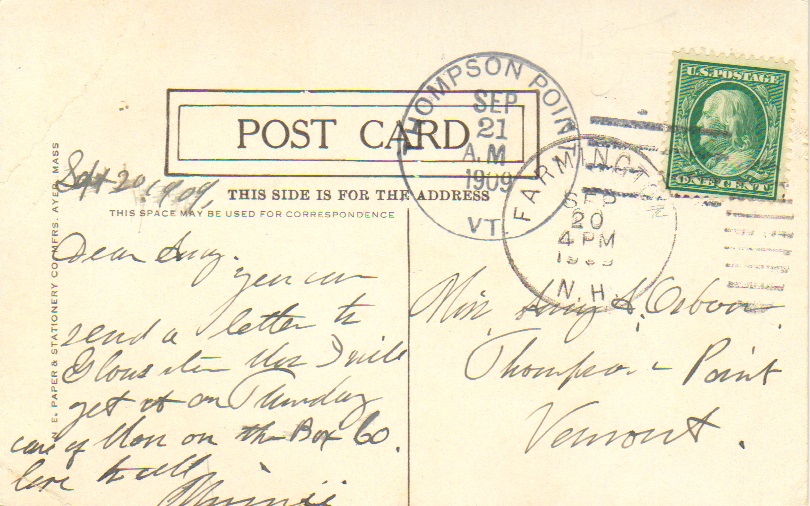 POST CARD
THIS SIDE IS FOR THE ADDRESS
THIS SPACE MAY BE USED FOR CORRESPONDENCE
N. E. PAPER & STATIONERY CO. MFRS. AYER, MASS
THOMPSON POINT
SEP
21
A.M
1909
VT.
FARMINGTON
SEP
20
4 PM
1909
N.H.
U.S. POSTAGE
ONE CENT
Sept 20, 1909,
Dear
you can
send a letter to
Mass I will
get it on Thursday
care of on the Box 60.
love to all
Minnie
Miss A. Osborn
Thompson Point
Vermont.